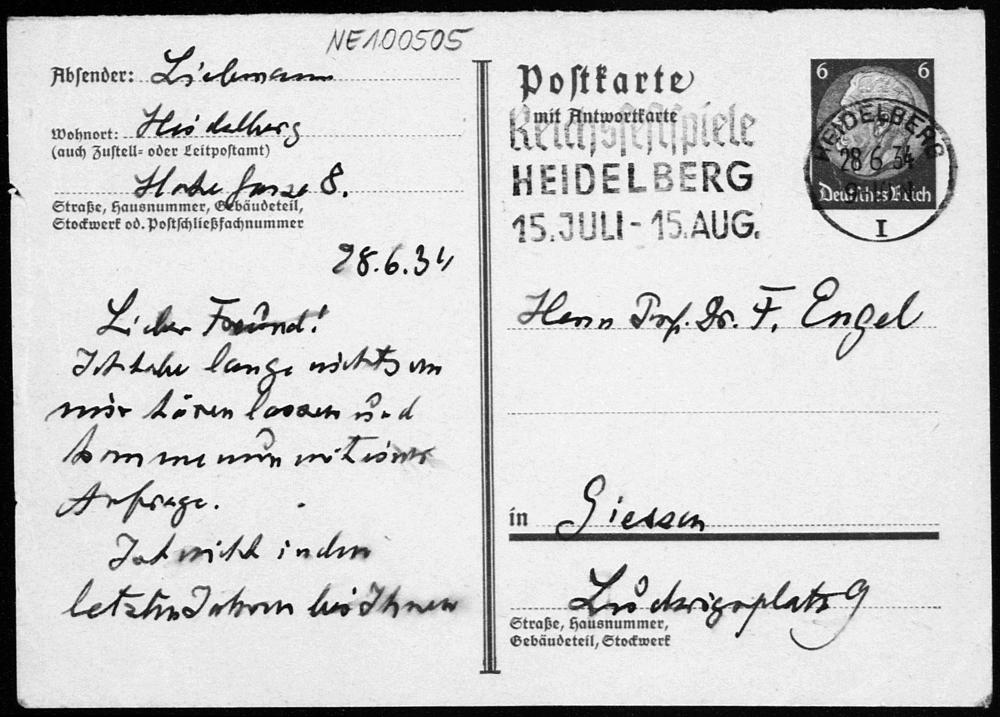 NE100505
Absender: Liebmann
Wohnort: Heidelberg
(auch Zustell- oder Leitpostamt)
8.
Straße, Hausnummer, Gebäudeteil,
Stockwerk od. Postschließfachnummer
28.6.34
Lieber Freund!
Ich habe lange nichts von
mir hören lassen und
komme nun mit einer
Anfrage.
Ich in den
letzten Jahren bei Ihnen
Postkarte
mit Antwortkarte
Reichsfestspiele
HEIDELBERG
15. JULI - 15. AUG.
6 6
Deutsches Reich
HEIDELBERG
28 6 34
I
Herrn Prof. Dr. F. Engel
in Giessen
Ludwigsplatz 9
Straße, Hausnummer,
Gebäudeteil, Stockwerk